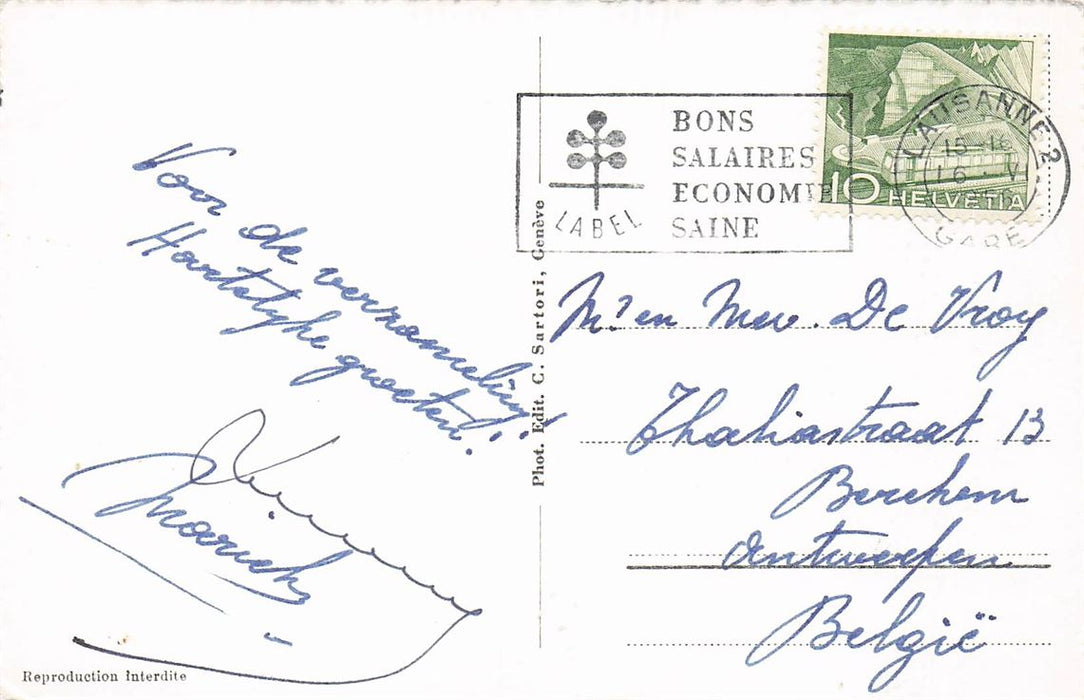 Voor de verzameling!
Hartelijke groeten!
BONS
SALAIRES
ECONOMIE
SAINE
LABEL
LAUSANNE 2
15-16
16 - V
1956
GARE
10 HELVETIA
Phot. Edit. C. Sartori, Genève
Mr en Mev. De Vroy
Thaliastraat 13
Berchem
Antwerpen
België
Reproduction Interdite